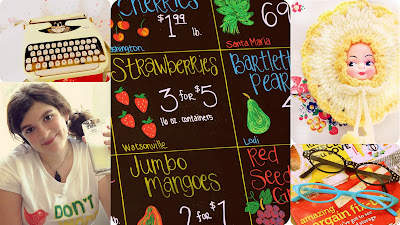 CHERRIES
$1.99
lb.
Washington
69
Santa Maria
STRAWBERRIES
3 FOR $5
16 oz. containers
Watsonville
BARTLETT
PEAR
Lodi
JUMBO
MANGOES
2 FOR $
RED
SEED
DON'T
amazing
bargain fix